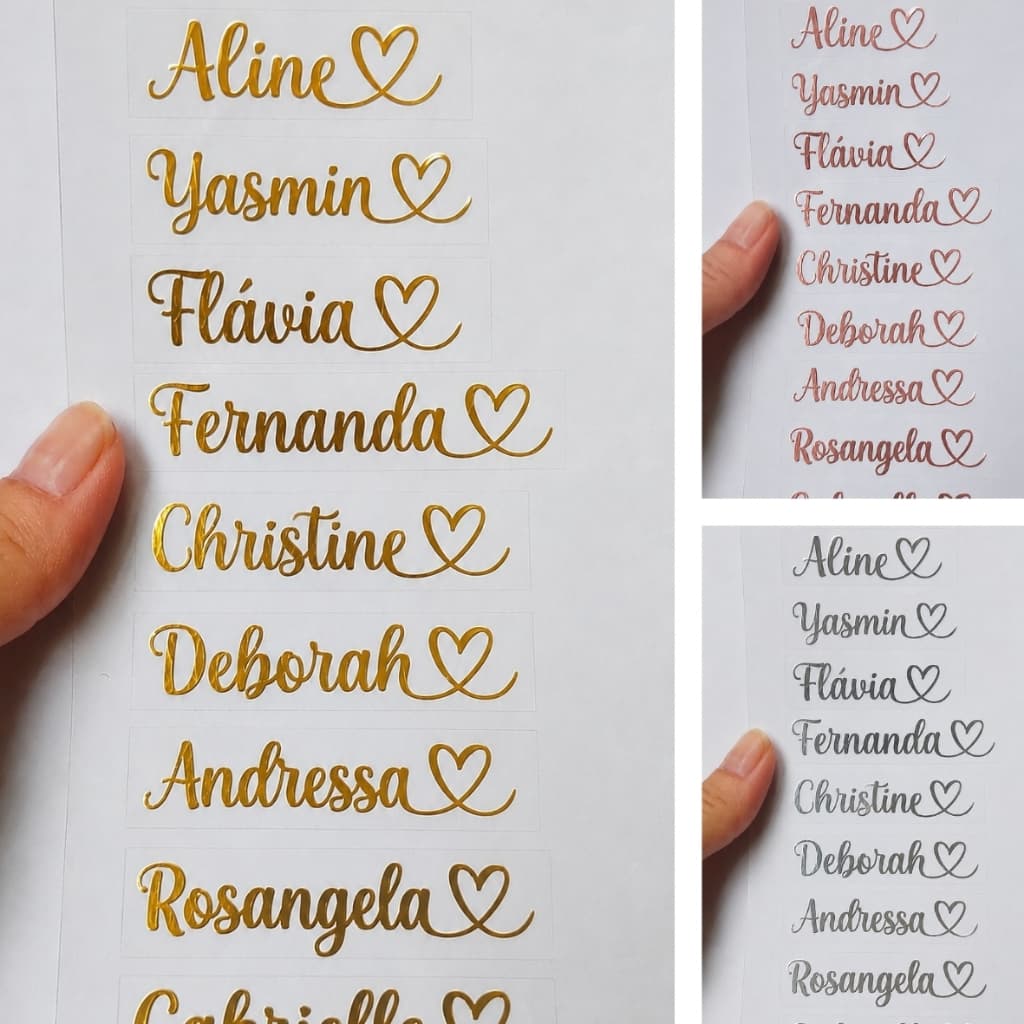 Aline
Yasmin
Flávia
Fernanda
Christine
Deborah
Andressa
Rosangela
Gabrielle
Aline
Yasmin
Flávia
Fernanda
Christine
Deborah
Andressa
Rosangela
Aline
Yasmin
Flávia
Fernanda
Christine
Deborah
Andressa
Rosangela